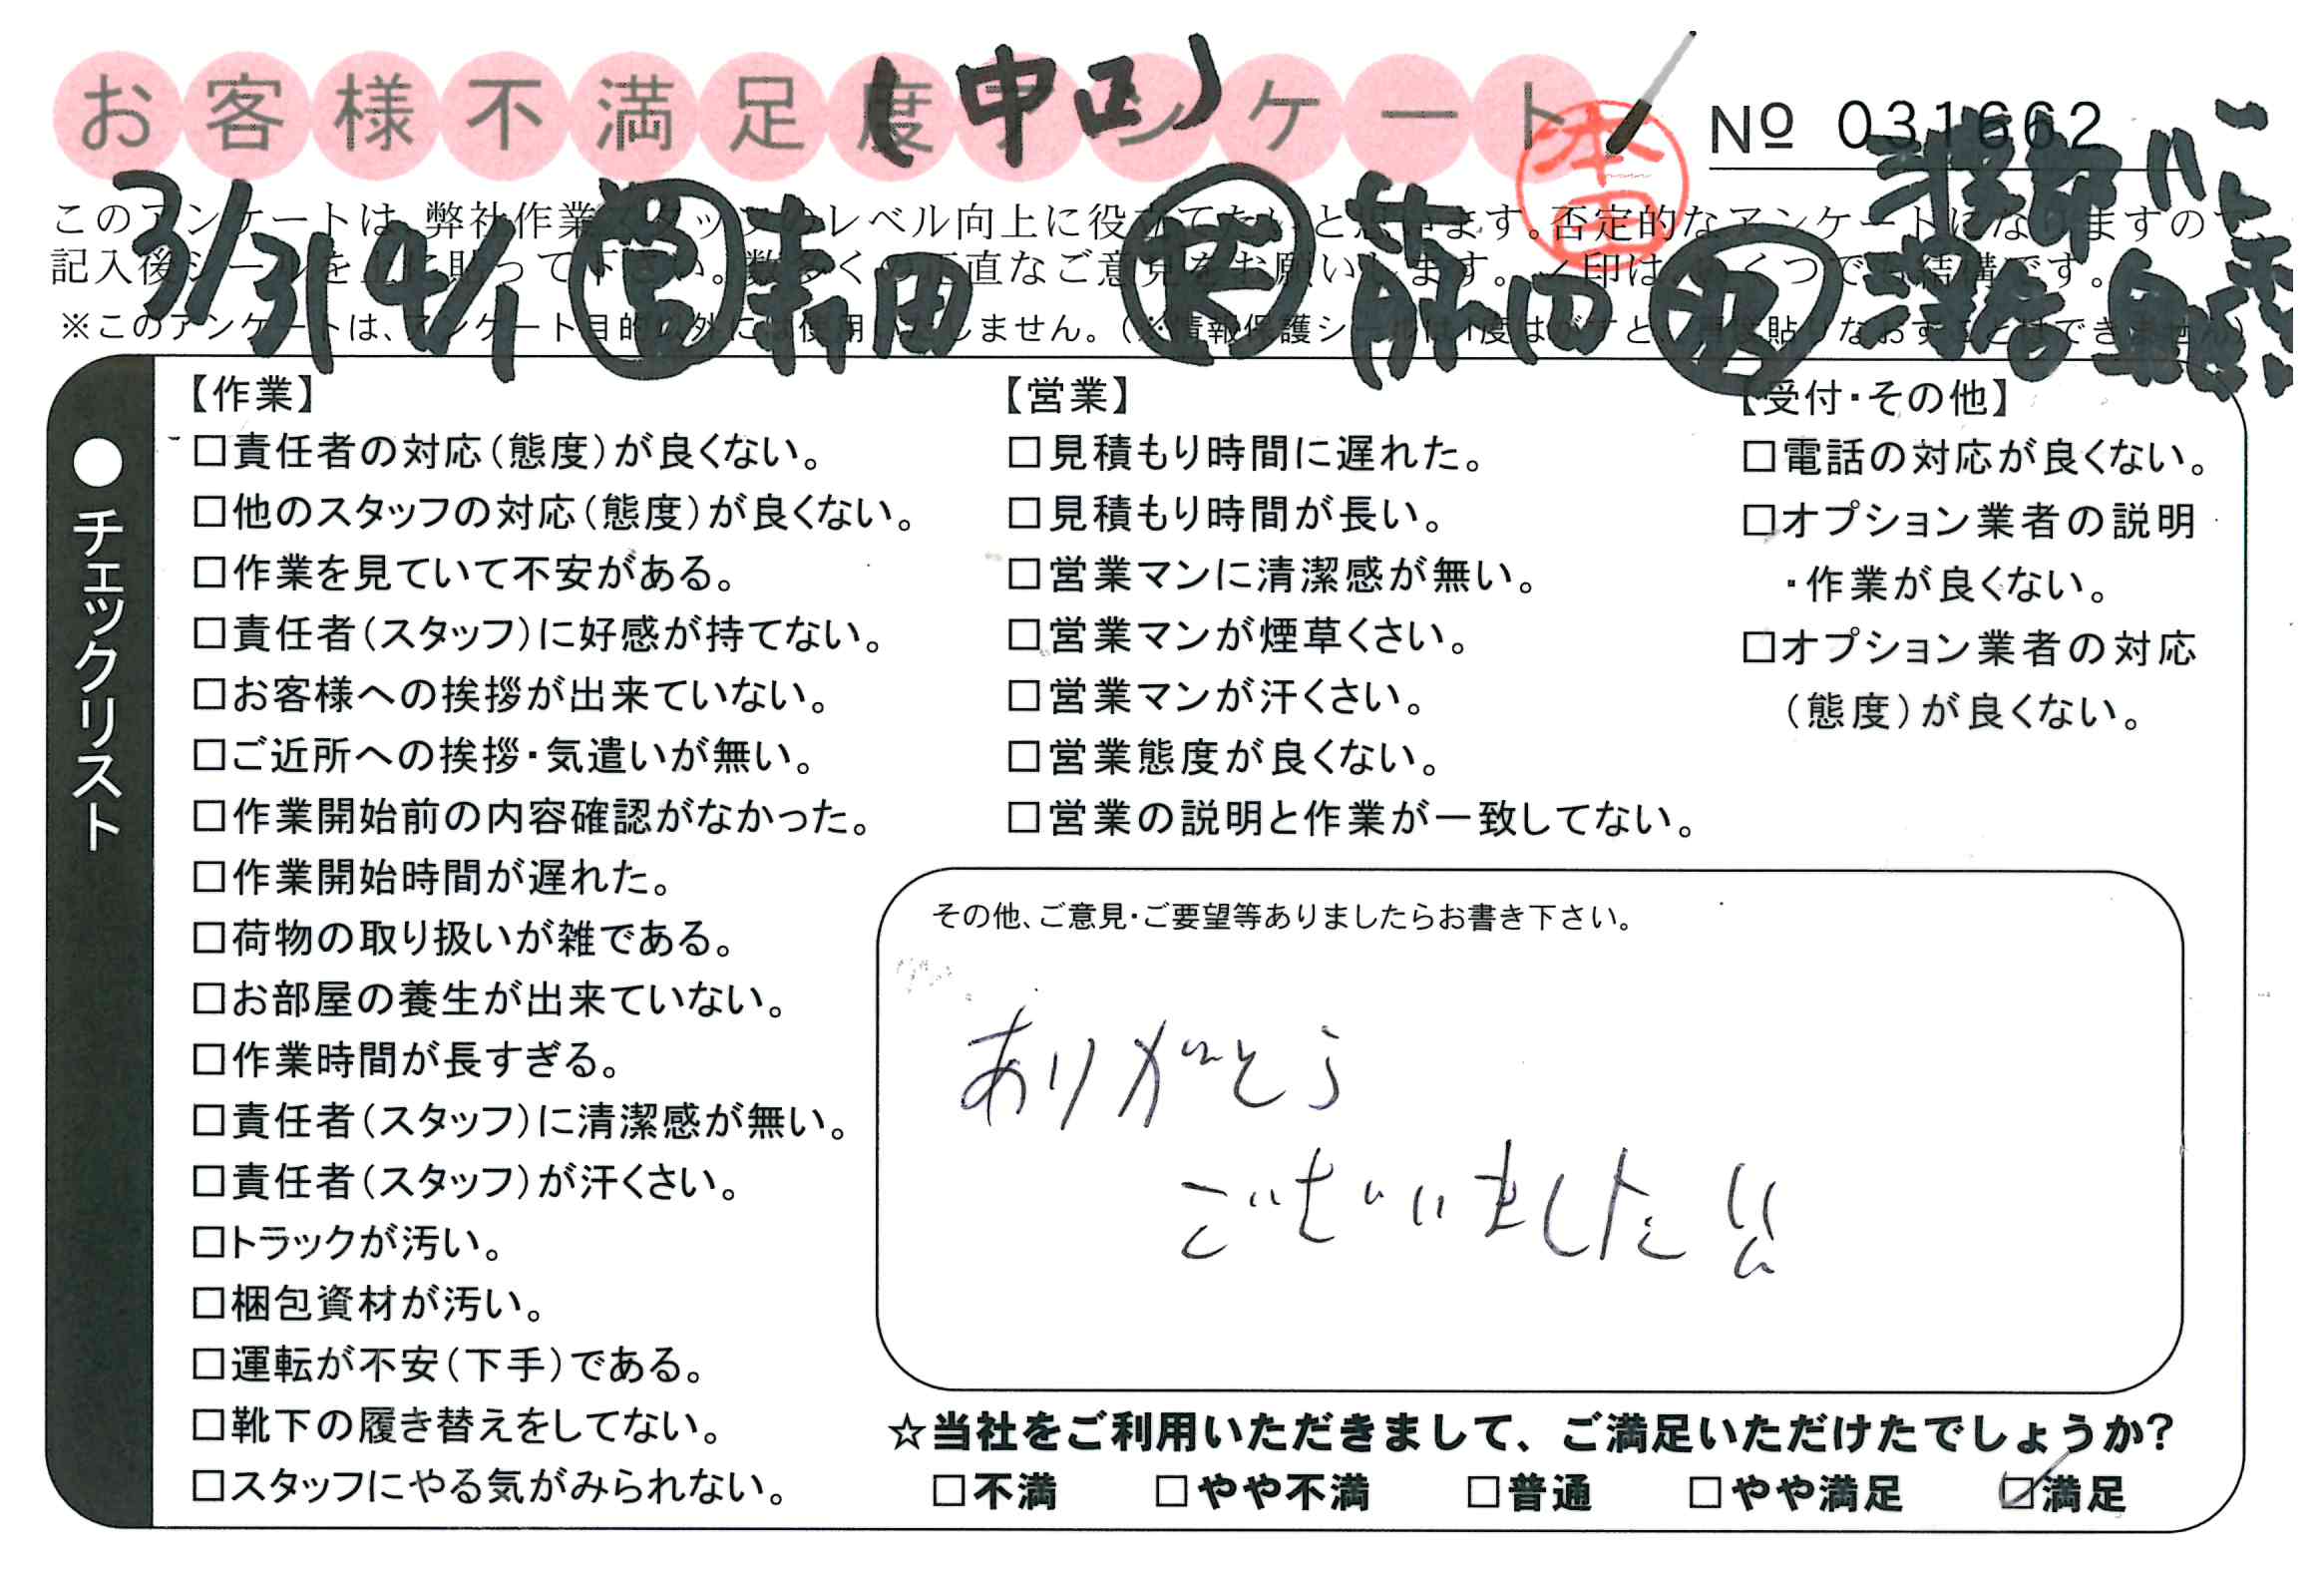 お客様不満足度アンケート
(中口)
本田
Nº 031662
このアンケートは、弊社作業スタッフのレベル向上に役立てたいと思います。否定的なアンケートになりますので、
記入後シールを上に貼って下さい。数多くの正直なご意見をお願いします。✓印はいくつでも結構です。
※このアンケートは、アンケート目的以外には使用いたしません。(※情報保護シールは1度はがすと、再度貼りなおすことはできません)
3/31 4/1 営 青田 作 前田
●チェックリスト
【作業】
□責任者の対応(態度)が良くない。
□他のスタッフの対応(態度)が良くない。
□作業を見ていて不安がある。
□責任者(スタッフ)に好感が持てない。
□お客様への挨拶が出来ていない。
□ご近所への挨拶・気遣いが無い。
□作業開始前の内容確認がなかった。
□作業開始時間が遅れた。
□荷物の取り扱いが雑である。
□お部屋の養生が出来ていない。
□作業時間が長すぎる。
□責任者(スタッフ)に清潔感が無い。
□責任者(スタッフ)が汗くさい。
□トラックが汚い。
□梱包資材が汚い。
□運転が不安(下手)である。
□靴下の履き替えをしてない。
□スタッフにやる気がみられない。
【営業】
□見積もり時間に遅れた。
□見積もり時間が長い。
□営業マンに清潔感が無い。
□営業マンが煙草くさい。
□営業マンが汗くさい。
□営業態度が良くない。
□営業の説明と作業が一致してない。
【受付・その他】
□電話の対応が良くない。
□オプション業者の説明
・作業が良くない。
□オプション業者の対応
(態度)が良くない。
その他、ご意見・ご要望等ありましたらお書き下さい。
ありがとう
ございました!!
☆当社をご利用いただきまして、ご満足いただけたでしょうか?
□不満 □やや不満 □普通 □やや満足 ☑満足